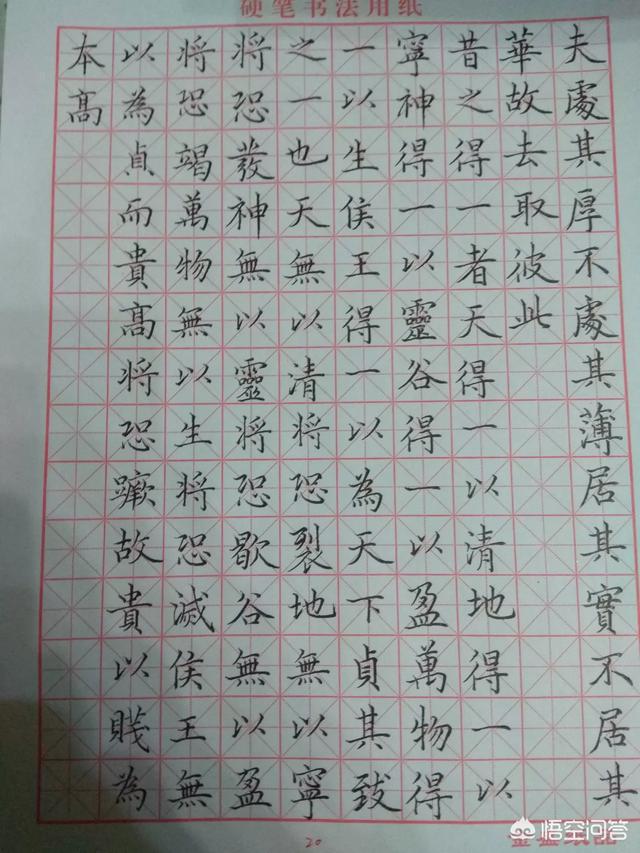 硬笔书法用纸
夫處其厚不處其薄居其實不居其
華故去取彼此
昔之得一者天得一以清地得一以
寧神得一以靈谷得一以盈萬物得
一以生侯王得一以為天下貞其致
之一也天無以清將恐裂地無以寧
將恐發神無以靈將恐歇谷無以盈
將恐竭萬物無以生將恐滅侯王無
以為貞而貴高將恐蹶故貴以賤為
本高
20
悟空问答